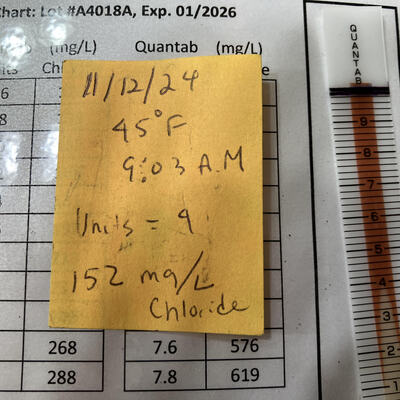 Chart: Lot #A4018A, Exp. 01/2026
(mg/L) Quantab (mg/L)
11/12/24
45°F
9:03 A.M
Units = 4
152 mg/L
Chloride
268 7.6 576
288 7.8 619
QUANTAB
9
8
7
6
5
4
3
2
1